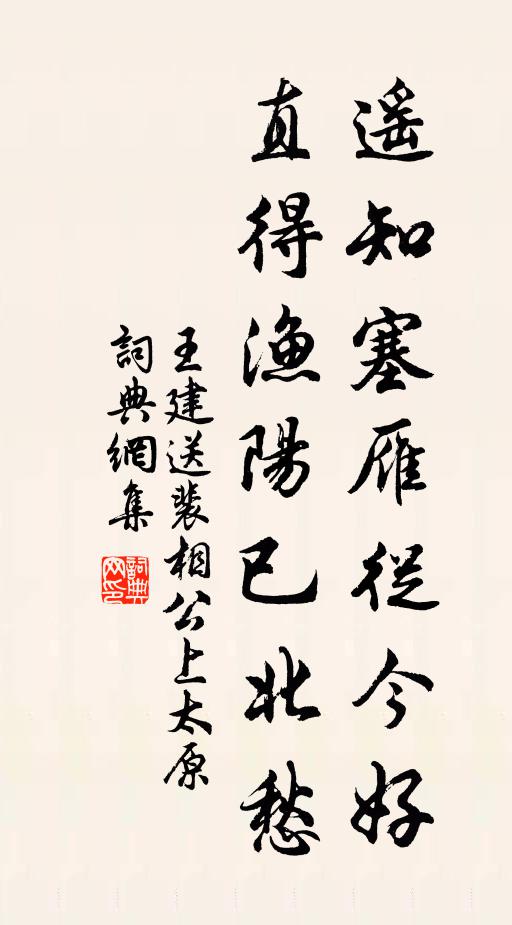 遥知塞雁從今好
直得漁陽已北愁
王建送裴相公上太原
詞典網集
詞典網印